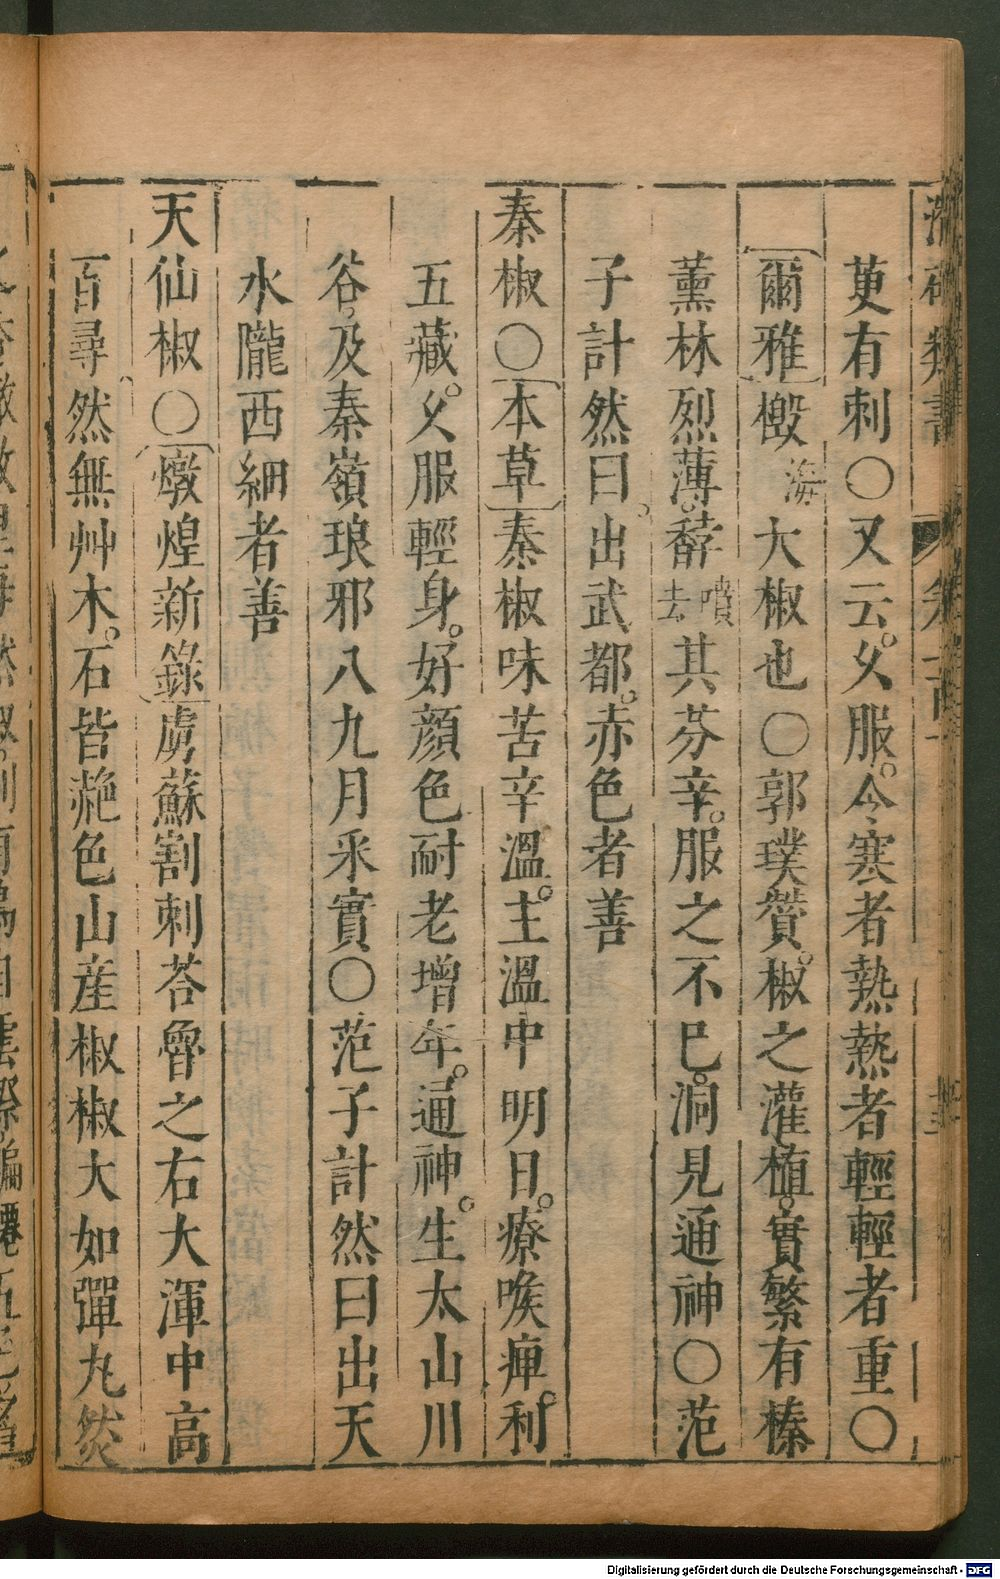 茰有刺〇又云。久服。令寒者熱熱者輕輕者重〇
爾雅檓海大椒也〇郭璞贊。椒之灌植。實繁有榛
薰林烈薄。馞噴去其芬辛。服之不已。洞見通神〇范
子計然曰。出武都。赤色者善
秦椒〇本草秦椒味苦辛溫。主溫中明目。療喉痺。利
五藏。久服輕身。好顏色耐老增年。通神。生太山川
谷。及秦嶺琅邪八九月采實〇范子計然曰出天
水隴西細者善
天仙椒〇燉煌新錄虜蘇割刺荅魯之右大渾中高
百尋然無艸木。石皆赩色山產椒椒大如彈丸然
Digitalisierung gefördert durch die Deutsche Forschungsgemeinschaft - DFG